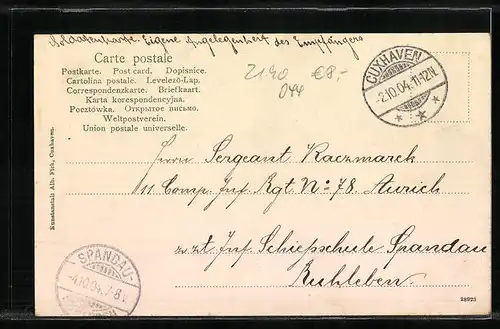 Soldatenkarte. Eigene Angelegenheit des Empfängers
Carte postale
Postkarte. Post card. Dopisnice.
Cartolina postale. Levelező-Lap.
Correspondenzkarte. Briefkaart.
Karta korespondencyjna.
Pocztówka. Открытое письмо.
Weltpostverein.
Union postale universelle.
2140 €8,-
044
CUXHAVEN
-2.10.04.11-12N.
Herrn Sergeant Kaczmarek
11 Comp. Inf. Rgt. No 78. Aurich
z. zt. Inf. Schießschule Spandau
Ruhleben.
Kunstanstalt Alb. Pich, Cuxhaven.
SPANDAU
-4.10.04.7-8V.
28923